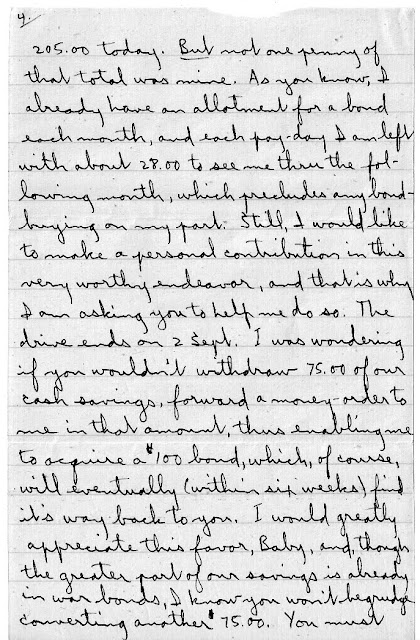 4.
205.00 today. But not one penny of
that total was mine. As you know, I
already have an allotment for a bond
each month, and each pay-day I am left
with about 28.00 to see me thru the fol-
lowing month, which precludes any bond-
buying on my part. Still, I would like
to make a personal contribution in this
very worthy endeavor, and that is why
I am asking you to help me do so. The
drive ends on 2 Sept. I was wondering
if you wouldn't withdraw 75.00 of our
cash savings, forward a money-order to
me in that amount, thus enabling me
to acquire a $100 bond, which, of course,
will eventually (within six weeks) find
it's way back to you. I would greatly
appreciate this favor, Baby, and, though
the greater part of our savings is already
in war bonds, I know you won't begrudge
converting another $75.00. You must